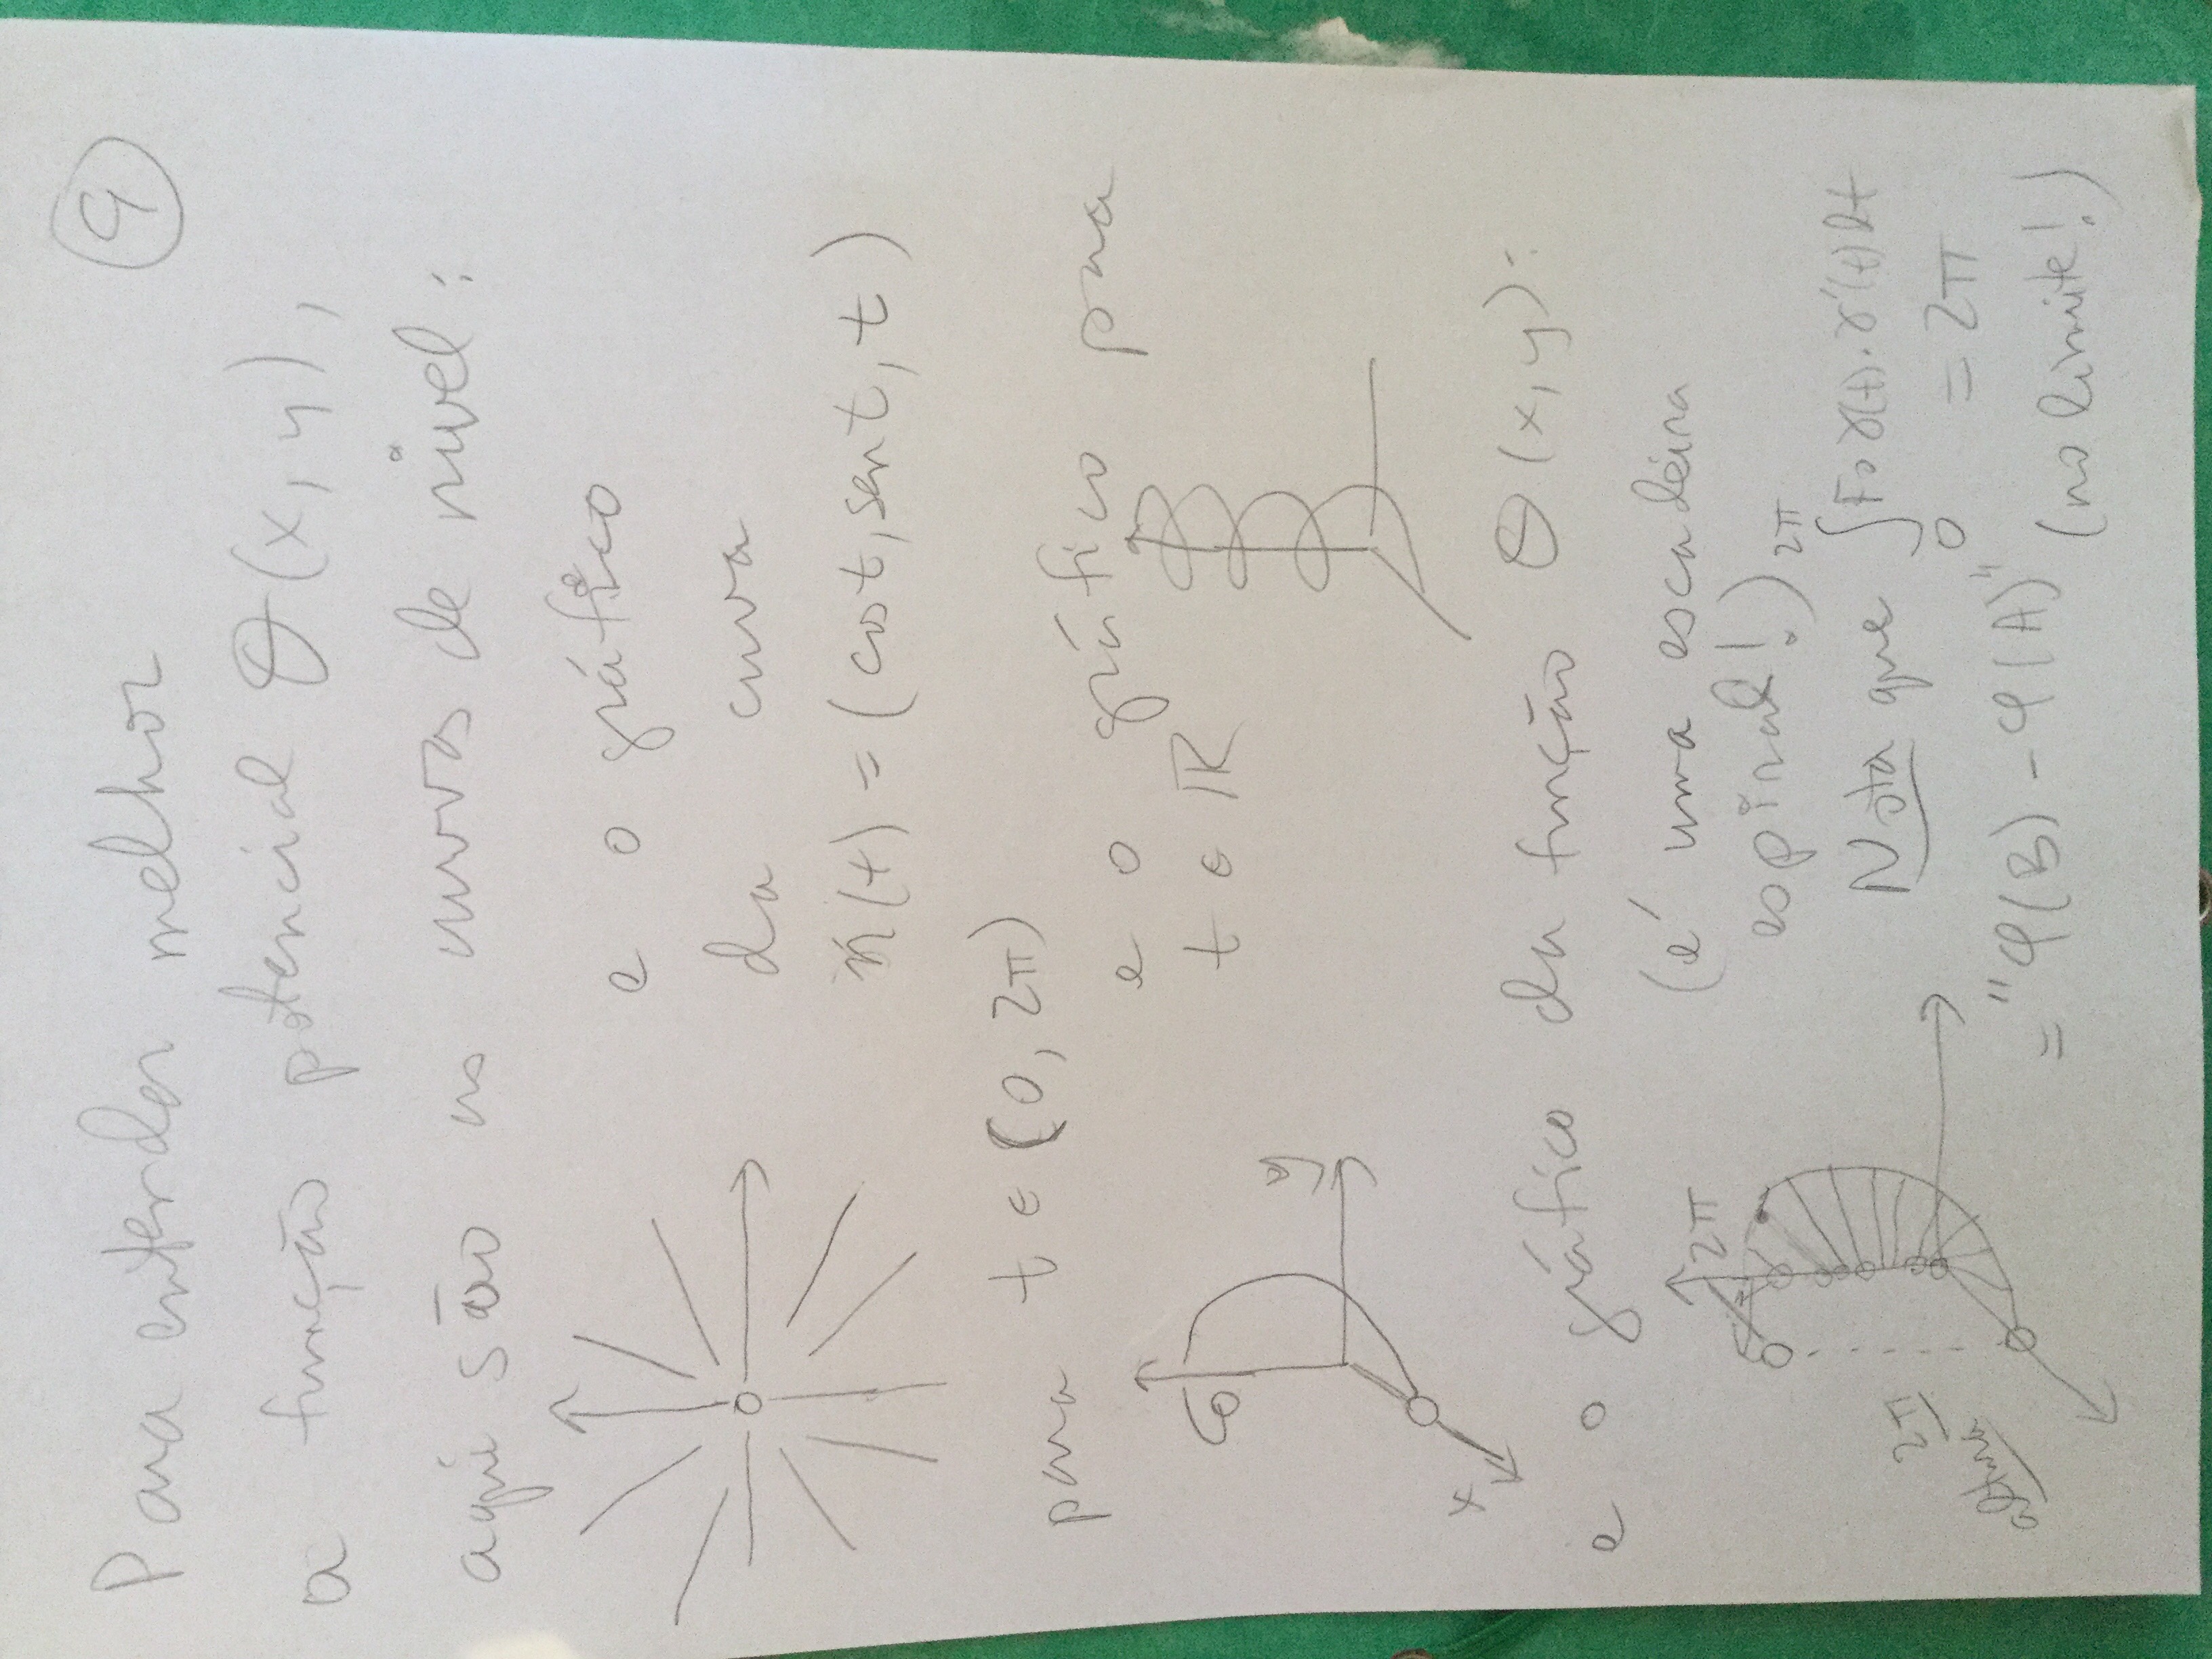 9
Para entender melhor
a função potencial θ(x,y),
aqui são as curvas de nível:
e o gráfico
da curva
(t) = (cost, sent, t)
para t ∈ (0, 2π)
e o gráfico para
t ∈ ℝ
y
x
e o gráfico da função θ(x,y):
(é uma escadéira
espiral!)
2π
2π
altura
Nota que ∫₀^2π F∘γ(t)·γ'(t)dt
= 2π
= "φ(B) - φ(A)" (no limite!)